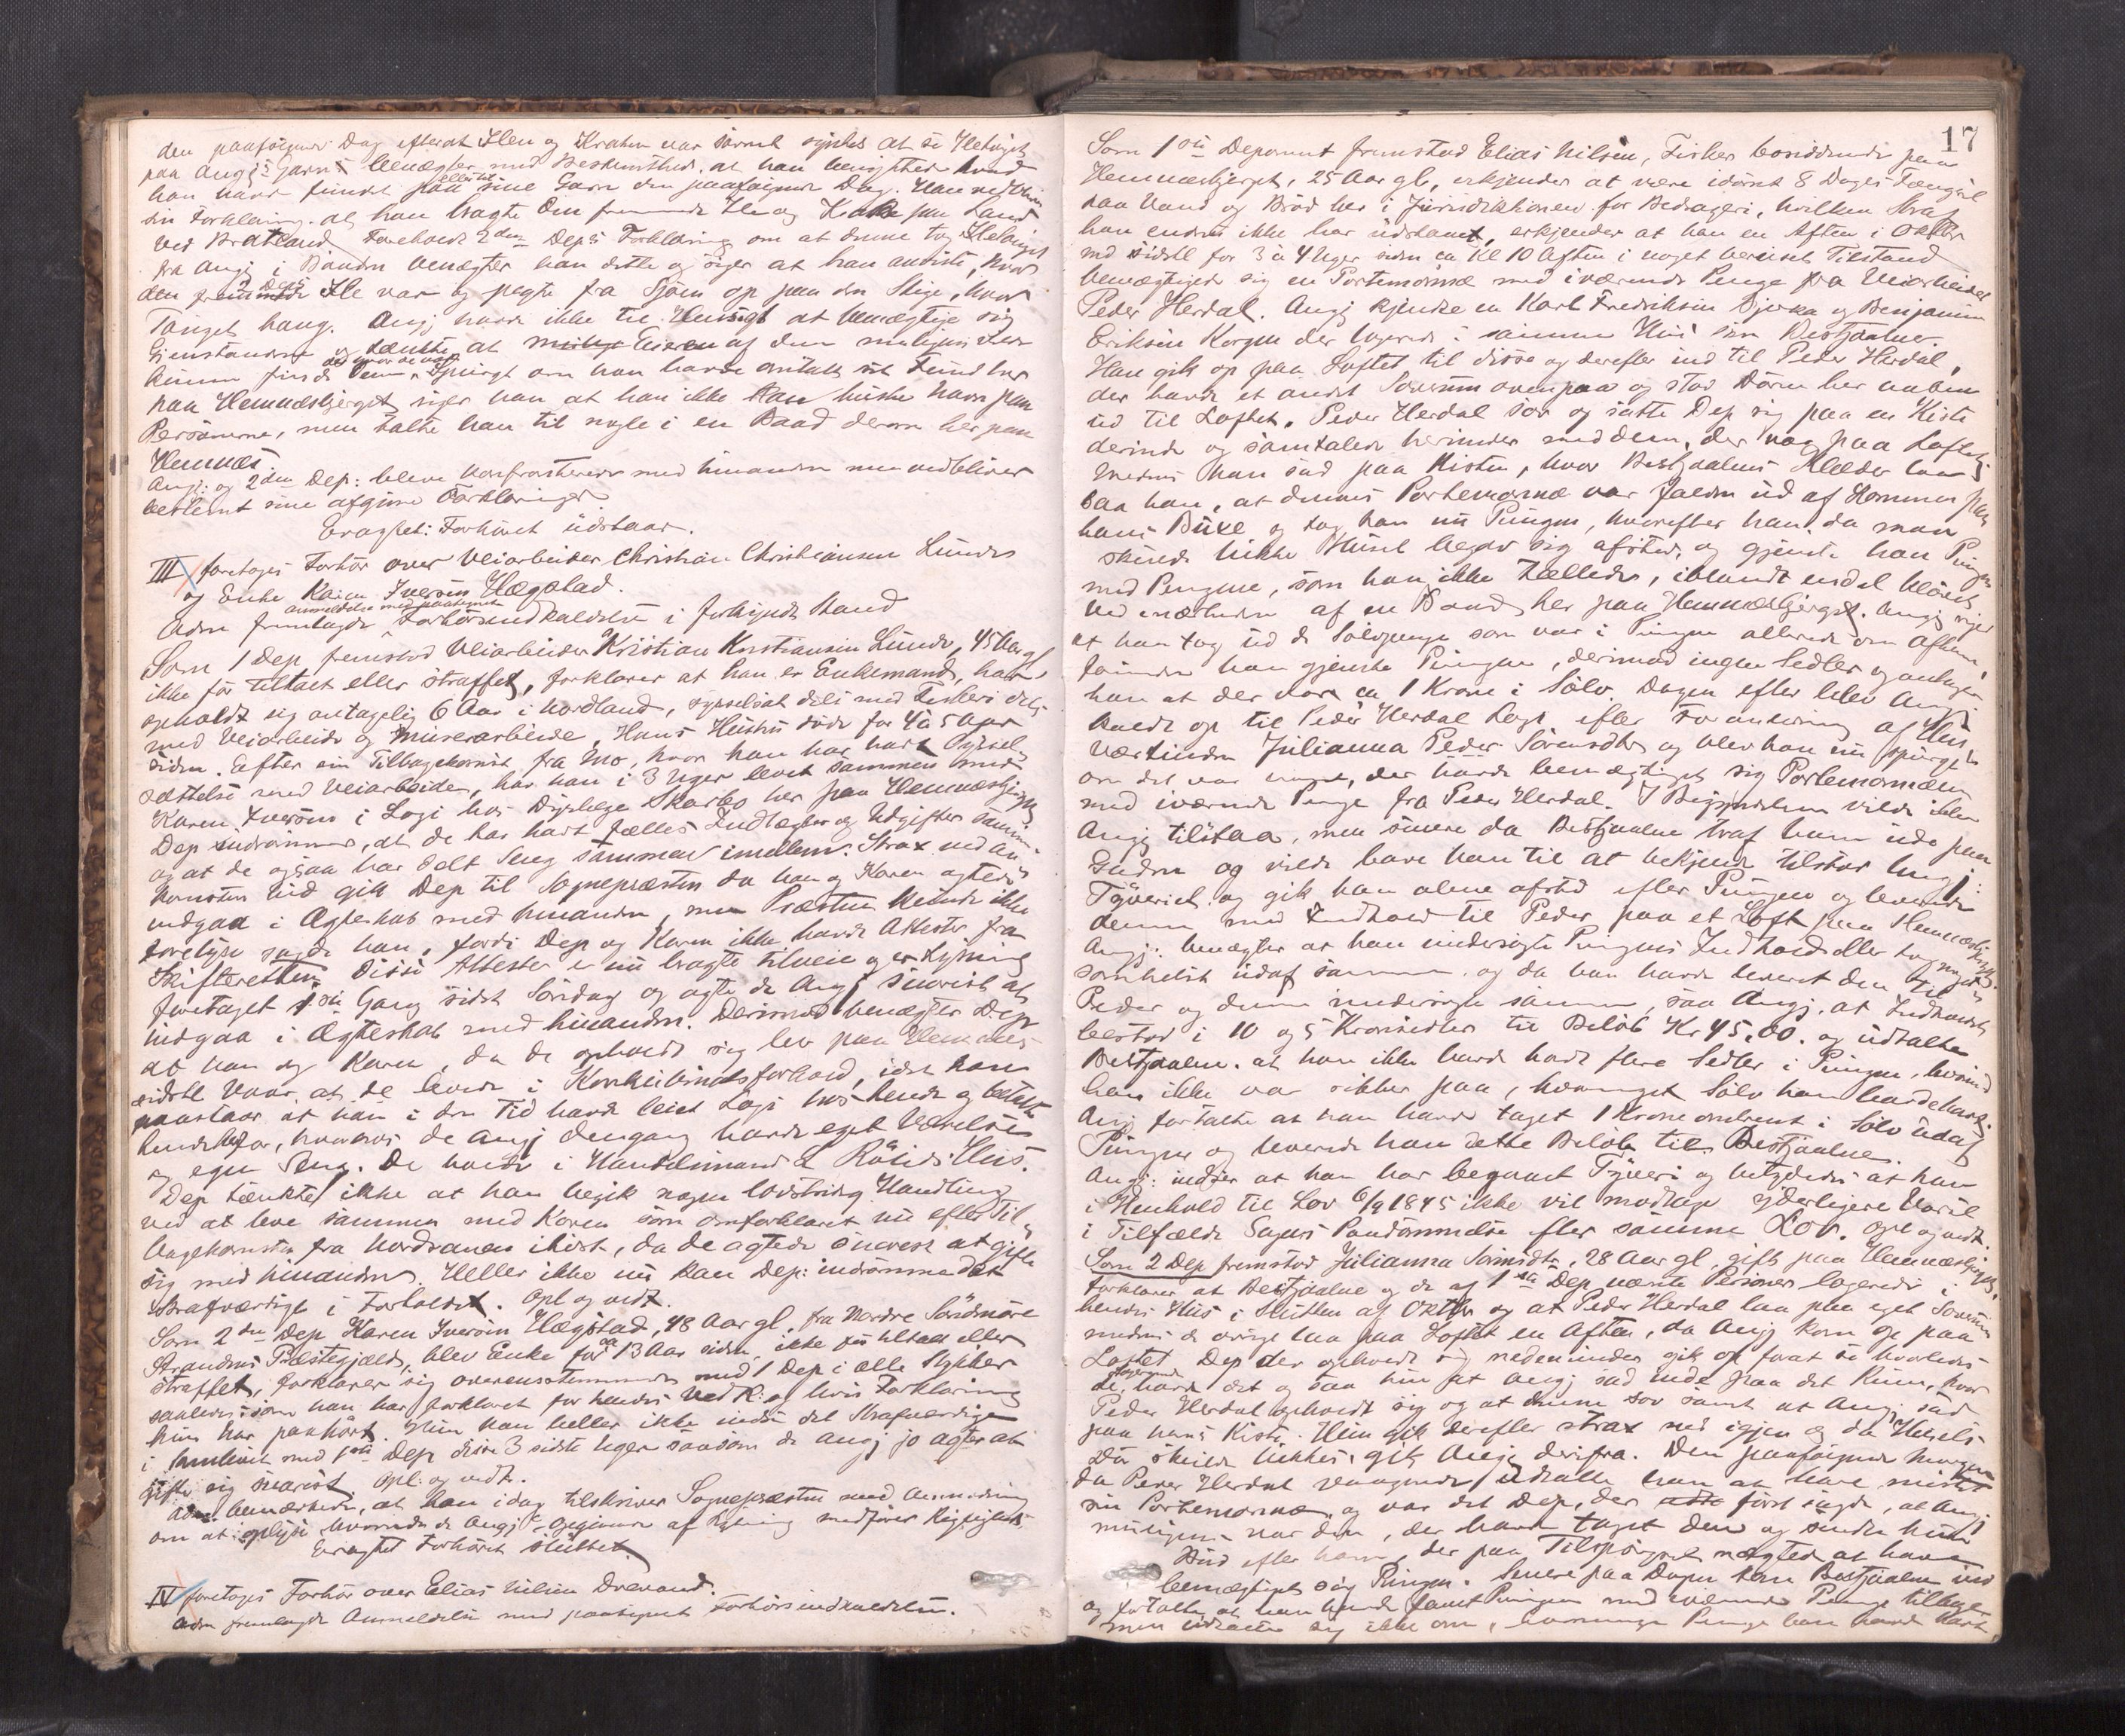 den paafølgende Dag efterat Ilen og Kraken var savnet syntes at se Hetøiget
paa Angj:s Garn benægter med Bestemthed, at han benyttede hvad
han havde fundet paa eller til sine Garn den paafølgende Dag. Han vedbliver
sin Forklaring, at han bragte den fremmede Ile og Krake paa Land
ved Bratland. Foreholdt 2den Dep:s Forklaring om at denne tog
fra Angj i Baaden benægter han dette og siger at han anviste, hvor
den 2 Dep:s Ile var og pegte fra Sjøen op paa den Skige, hvor
Tauget hang. Angj havde ikke til Hensigt at bemægtige sig
Gjenstandene og tænkte at Eieren af dem muligens
kunde finde dem der hvor de var. Spurgt om han havde omtalt sit Fund her
paa Hemnæsbjerget siger han at han ikke kan huske Navn paa
Personerne, men talte han til nogle i en Baad derom her paa
Hemnæs.
Angj: og 2den Dep: bleve konfronterede med hinanden men vedbliver
bestemt sine afgivne Forklaringer.
Eragtet: Forhøret udstaar.
III foretoges Forhør over Veiarbeider Christian Christiansen Lunde
og Enke Karen Iversen Hægstad.
Adm fremlagde anmeldelse med paategnet Forhørsindkaldelse i forkyndt Stand
Som 1 Dep fremstod Veiarbeider Kristian Kristiansen Lunde, 45 Aar gl
ikke før tiltalt eller straffet, forklarer at han er Enkemand, har
opholdt sig antagelig 6 Aar i Nordland, sysselsat dels med Fiskeri dels
med Veiarbeide og Murerarbeide. Hans Hustru døde for 4 à 5 Aar
siden. Efter sin Tilbagekomst fra Mo, hvor han har havt Syssel-
sættelse med Veiarbeide, har han i 3 Uger levet sammen med
Karen Iversen i Logi hos Dyrlæge Skarbo her paa Hemnæsbjerget
Dep indrømmer, at de har havt fælles Indtægter og Udgifter sammen
og at de ogsaa har delt Seng sammen imellem. Strax ved An-
komsten hid gik Dep til Sognepræsten da han og Karen agtede
indgaa i Ægteskab med hinanden, men Præsten kunde ikke
foretage sagde han, fordi Dep og Karen ikke havde Attester fra
Skifteretten. Disse Attester er nu bragte tilveie og er Lysning
foretaget 1ste Gang sidst Søndag og agte de Angj snarest at
indgaa i Ægteskab med hinanden. Derimod benægter Dep
at han og Karen, da de opholdt sig her paa Hemnæs
sidste Vaar, at de levede i Konkubinatsforhold, idet han
paastaar at han i den Tid havde leiet Logi hos hende og betalte
hende for, hvorhos de Angj dengang havde eget Værelse
og egen Seng. De boede i Handelsmand L Røliés Hus.
Dep tænkte ikke at han begik nogen lovstridig Handling
ved at leve sammen med Karen som omforklaret nu efter Til-
bagekomsten fra Nordranen i høst, da de agtede snarest at gifte
sig med hinanden. Heller ikke nu kan Dep: indrømme det
Strafværdige i Forholdet. Opl og vedt.
Som 2den Dep Karen Iversen Hægstad, 48 Aar gl. fra Nordre Søndmøre
Strandens Præstegjæld, blev Enke for ca 13 Aar siden, ikke før tiltalt eller
straffet, forklarer sig overensstemmende med 1 Dep i alle Stykker
saaledes som han har forklaret for hendes Vedk: og hvis Forklaring
hun har paahørt. Hun kan heller ikke indse det Strafværdige
i Samlivet med 1ste Dep disse 3 sidste Uger saasom de Angj jo agter at
gifte sig snarest. Opl. og vedt.
Adm: bemærkede, at han idag tilskriver Sognepræsten med Anmodning
om at oplyse hvorvidt de Angj:s Opgivende af Lysning medfører Rigtighed.
Eragtet Forhøret sluttet.
IV foretoges Forhør over Elias Nilsen Drevand.
Adm fremlagde Anmeldelse med paategnet Forhørsindkaldelse.
17
Som 1ste Deponent fremstod Elias Nilsen, Fisker boende paa
Hemnæsbjerget, 25 Aar gl, erkjender at være idømt 8 Dages Fængsel
paa Vand og Brød her i Jurisdiktionen for Bedrageri, hvilken Straf
han endnu ikke har udstaaet, erkjender at han en Aften i Oktbr
md sidstl for 3 à 4 Uger siden ca Kl 10 Aften i noget beruset Tilstand
bemægtigede sig en Portemonnæ med iværende Penge fra Veiarbeider
Peder Herdal. Angj kjendte en Karl Fredriksen Bjerka og Benjamin
Eriksen Korgen der logerede i samme Hus som Bestjaalne.
Han gik op paa Loftet til disse og derefter ind til Peder Herdal,
der havde et andet Soverum ovenpaa og stod Døren her aaben
ud til Loftet. Peder Herdal sov og satte Dep sig paa en Kiste
derinde og samtalede herinder med dem, der laa paa Loftet
Medens han sad paa Kisten, hvor Bestjaalnes Klæder laa
saa han, at dennes Portemonnæ var falden ud af Lommen paa
hans Buxe og tog han nu Pungen, hvorefter han, da man
skulde lukke Huset begav sig afsted, og gjemte han Pungen
med Pengene, som han ikke tællede, iblandt endel Kløv
ved nærheden af en Baad her paa Hemnæsbjerget. Angj siger
at han tog ud de Sølvpenge som var i Pungen allerede om Aftenen
førinden han gjemte Pungen, derimod ingen Sedler og antager
han at der var ca 1 Krone i Sølv. Dagen efter blev Angj
kaldt op til Peder Herdals Logi efter Foranledning af Hus-
værtinden Julianna Peder Sørensdtr og blev han nu spurgt
om det var ham, der havde bemægtiget sig Portemonnæen
med iværende Penge fra Peder Herdal. I Begyndelsen vilde ikke
Angj tilstaa, men senere da Bestjaalne traf ham ude paa
Gaden og vilde have han til at bekjende tilstod Angj:
Tyveriet og gik han alene afsted efter Pungen og leverede
denne med Indhold til Peder paa et Loft paa Hemnæsbjerget.
Angj: benægter at han undersøgte Pungens Indhold eller tog noget
somhelst udaf samme og da han havde leveret den til
Peder og denne undersøgte samme, saa Angj, at Indholdet
bestod i 10 og 5 Kronsedler til Beløb Kr 45,00. og udtalte
Bestjaalne, at han ikke havde havt flere Sedler i Pungen, hvorimod
han ikke var sikker paa, hvormeget Sølv han havde havt.
Angj fortalte at han havde taget 1 Krone omtrent i Sølv udaf
Pungen og leverede han dette Beløb til Bestjaalne.
Angj: indser at han har begaaet Tyveri og betydedes at han
i Henhold til Lov 6/9 1845 ikke vil modtage yderligere Varsel
i Tilfælde Sagens Paadømmelse efter samme Lov. Opl og vedt.
Som 2 Dep fremstod Julianna Sørensdtr, 28 Aar gl, gift paa Hemnæsbjerget,
forklarer at Bestjaalne og de af 1ste Dep nævnte Personer logerede i
hendes Hus i Slutten af Oktbr og at Peder Herdal laa paa eget Soverum
medens de øvrige laa paa Loftet en Aften, da Angj kom op paa
Loftet. Dep der opholdt sig nedenunder gik op forat se hvorledes
de logerende havde det og saa hun at Angj sad inde paa det Rum, hvor
Peder Herdal opholdt sig og at denne sov samt at Angj sad
paa hans Kiste. Hun gik derefter strax ned igjen og da Husets
Dør skulde lukkes gik Angj derifra. Den paafølgende Morgen
da Peder Herdal vaagnede udtalte han at have mistet
sin Portemonnæ og var det Dep, der først sagde, at Angj
muligens var den, der havde taget den og sendte hun
Bud efter ham, der paa Tilspørgsel nægtede at have
bemægtiget sig Pungen. Senere paa Dagen kom Bestjaalne ind
og fortalte at han havde faaet Pungen med iværende Penge tilbage
men udtalte sig ikke om, hvormange Penge han havde havt